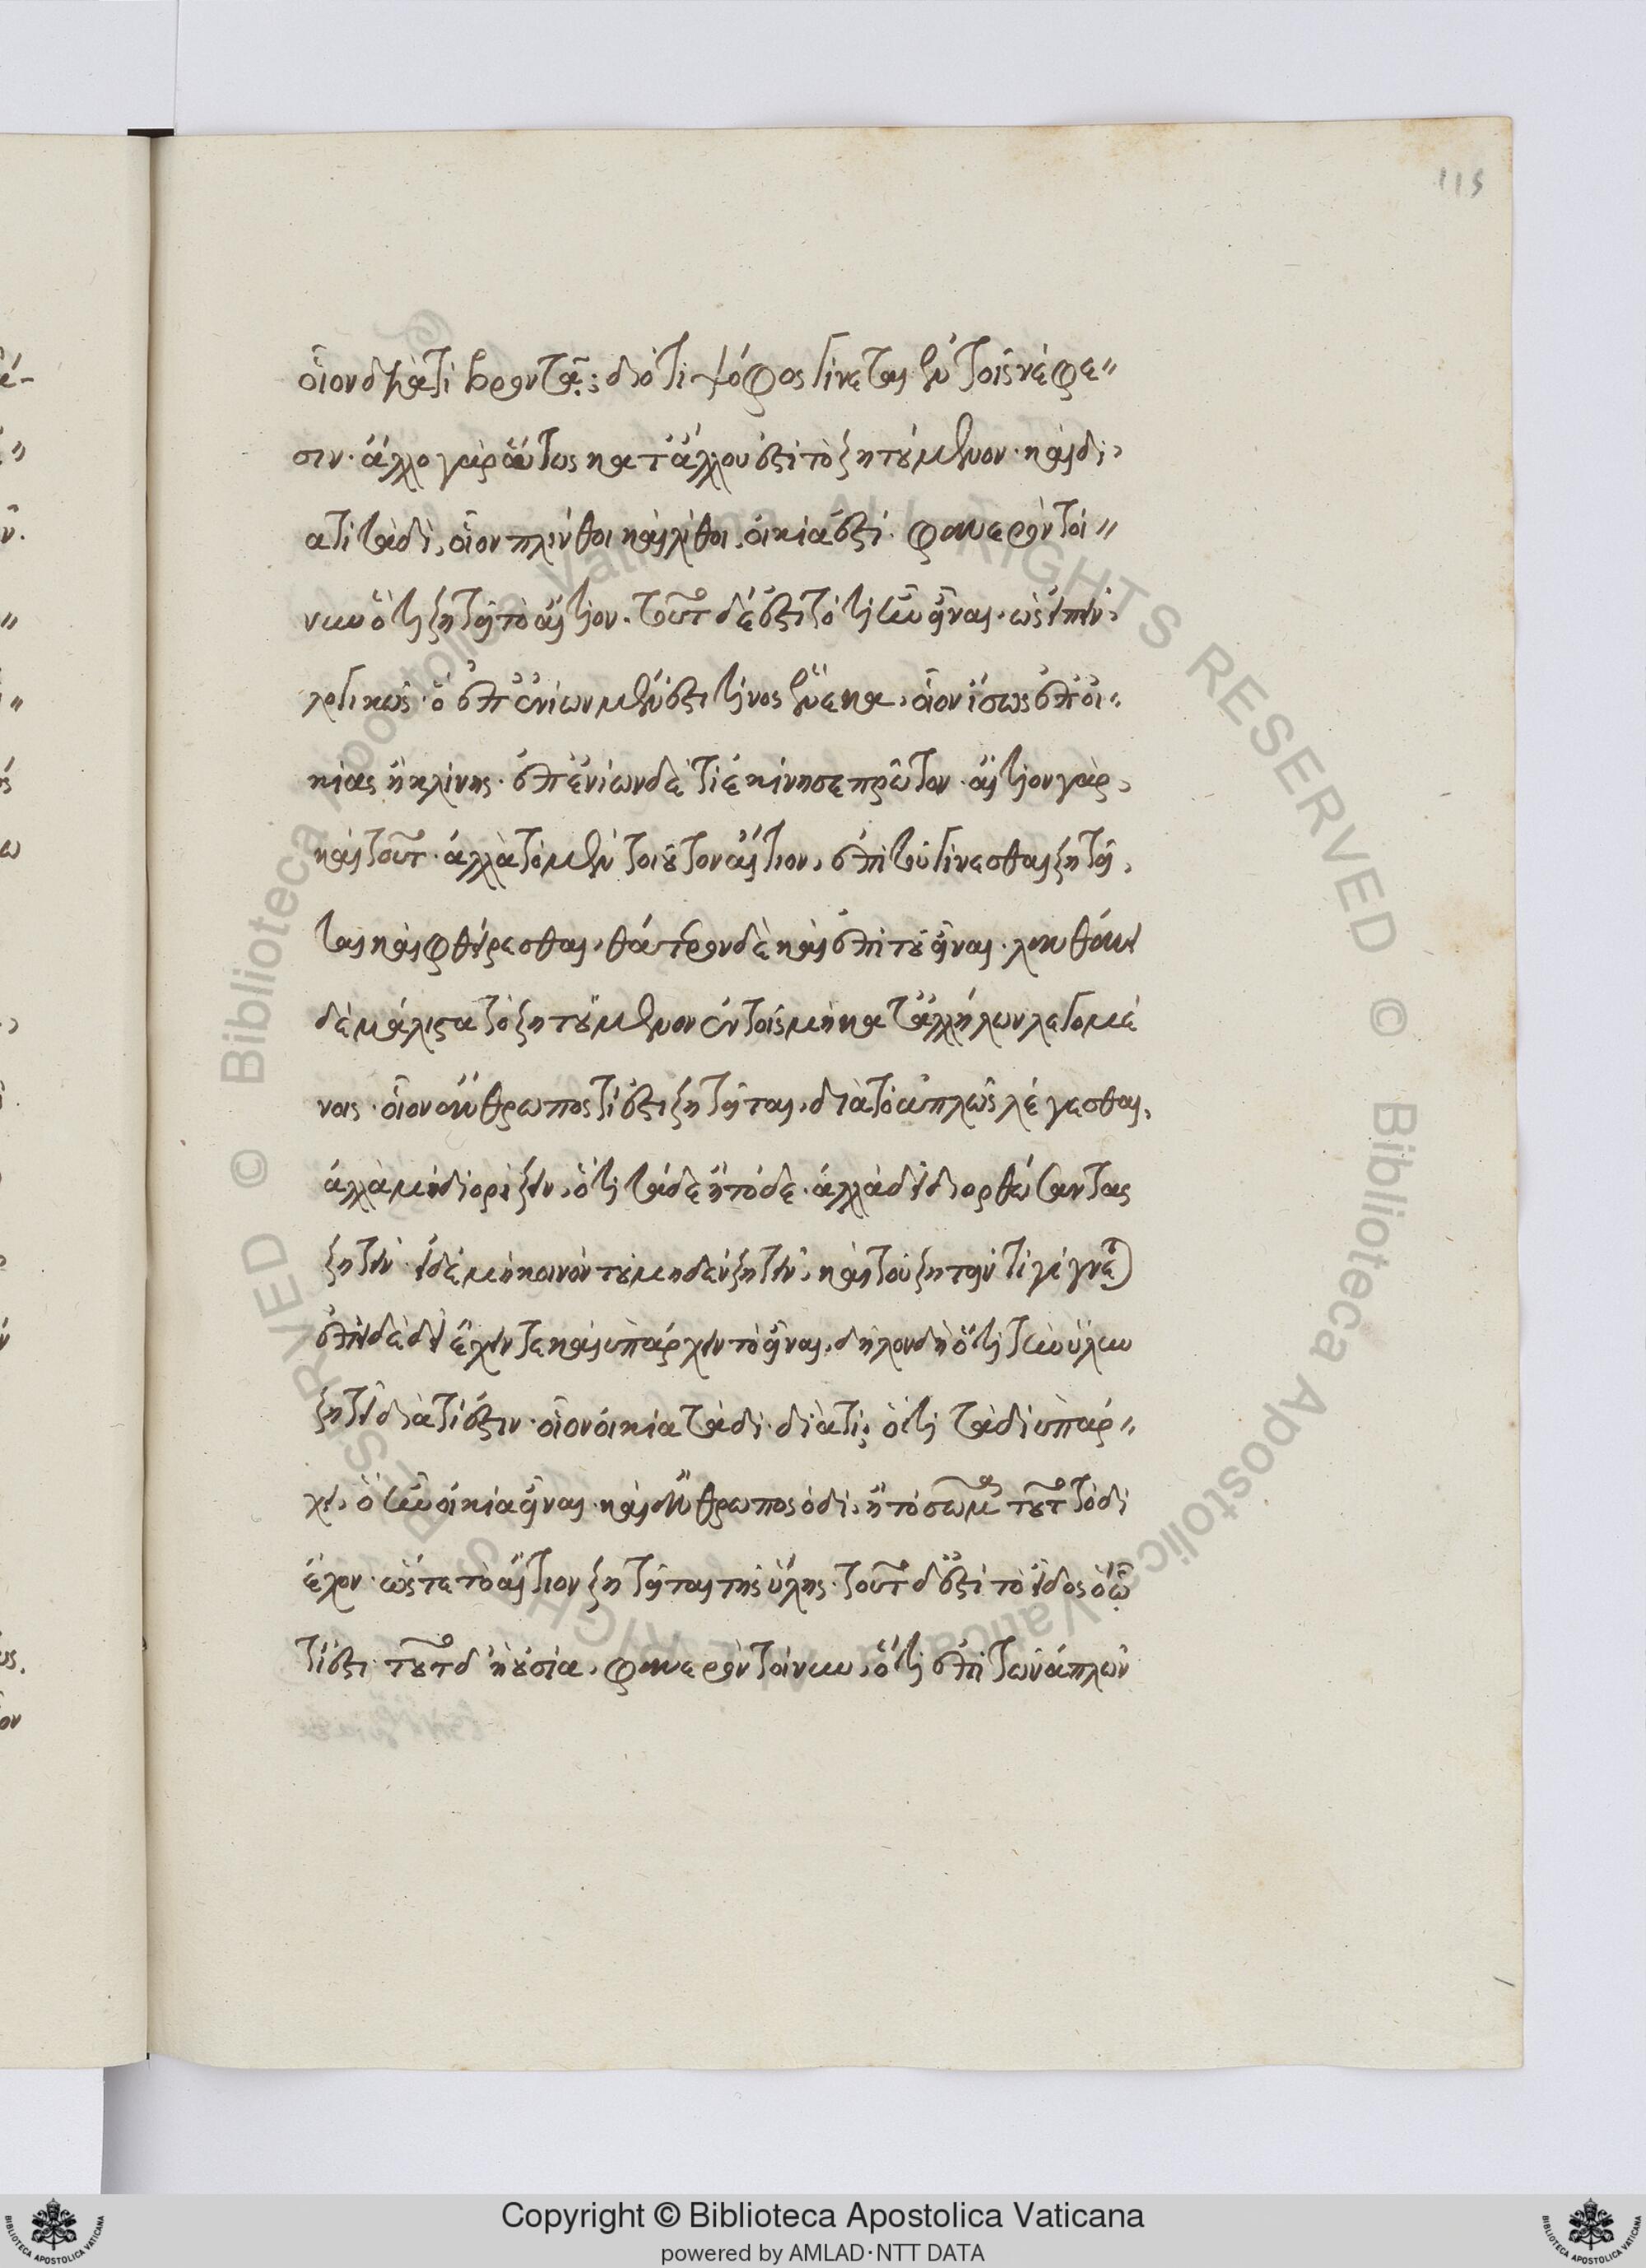 115
οἷον διατί βροντᾷ; διότι ψόφος γίνεται ἐν τοῖς νέφε〃
σιν· ἄλλο γὰρ οὕτως κατ' ἄλλου ἐστὶ τὸ ζητούμενον· καὶ δι〃
ατί ταδὶ, οἷον πλίνθοι καὶ λίθοι, οἰκία ἐστί. φανερὸν τοί〃
νυν ὅτι ζητεῖ τὸ αἴτιον. τοῦτο δέ ἐστι τὸ τί ἦν εἶναι· ὡς εἰπεῖν
λογικῶς· ὃ ἐπ' ἐνίων μέν ἐστι τίνος ἕνεκα, οἷον ἴσως ἐπ' οἰ〃
κίας ἢ κλίνης· ἐπ' ἐνίων δὲ τί ἐκίνησε πρῶτον· αἴτιον γὰρ
καὶ τοῦτο· ἀλλὰ τὸ μὲν τοιοῦτον αἴτιον, ἐπὶ τοῦ γίνεσθαι ζητεῖ
ται καὶ φθείρεσθαι, θάτερον δὲ καὶ ἐπὶ τοῦ εἶναι. λανθάνει
δὲ μάλιστα τὸ ζητούμενον ἐν τοῖς μὴ κατ' ἀλλήλων λεγομέ
νοις· οἷον ἄνθρωπος τί ἐστι ζητεῖται, διὰ τὸ ἁπλῶς λέγεσθαι,
ἀλλὰ μὴ διορίζειν, ὅτι τάδε ἢ τόδε· ἀλλὰ δεῖ διορθώσαντας
ζητεῖν· εἰ δὲ μὴ κοινὸν τοῦ μηδὲν ζητεῖν, καὶ τοῦ ζητεῖν τί γίγνεται
ἐπεὶ δὲ δεῖ ἔχειν τε καὶ ὑπάρχειν τὸ εἶναι, δῆλον δὴ ὅτι τὴν ὕλην
ζητεῖ διατί ἐστιν· οἷον οἰκία ταδί· διατί; ὅτι ταδὶ ὑπάρ〃
χει, ὃ ἦν οἰκία εἶναι· καὶ ἄνθρωπος ὁδί, ἢ τὸ σῶμα τοῦτο τοδὶ
ἔχον· ὥστε τὸ αἴτιον ζητεῖται τῆς ὕλης· τοῦτο δ' ἐστὶ τὸ εἶδος ὃ ᾧ
τί ἐστι· τοῦτο δ' ἡ οὐσία. φανερὸν τοίνυν, ὅτι ἐπὶ τῶν ἁπλῶν
Copyright © Biblioteca Apostolica Vaticana
powered by AMLAD·NTT DATA